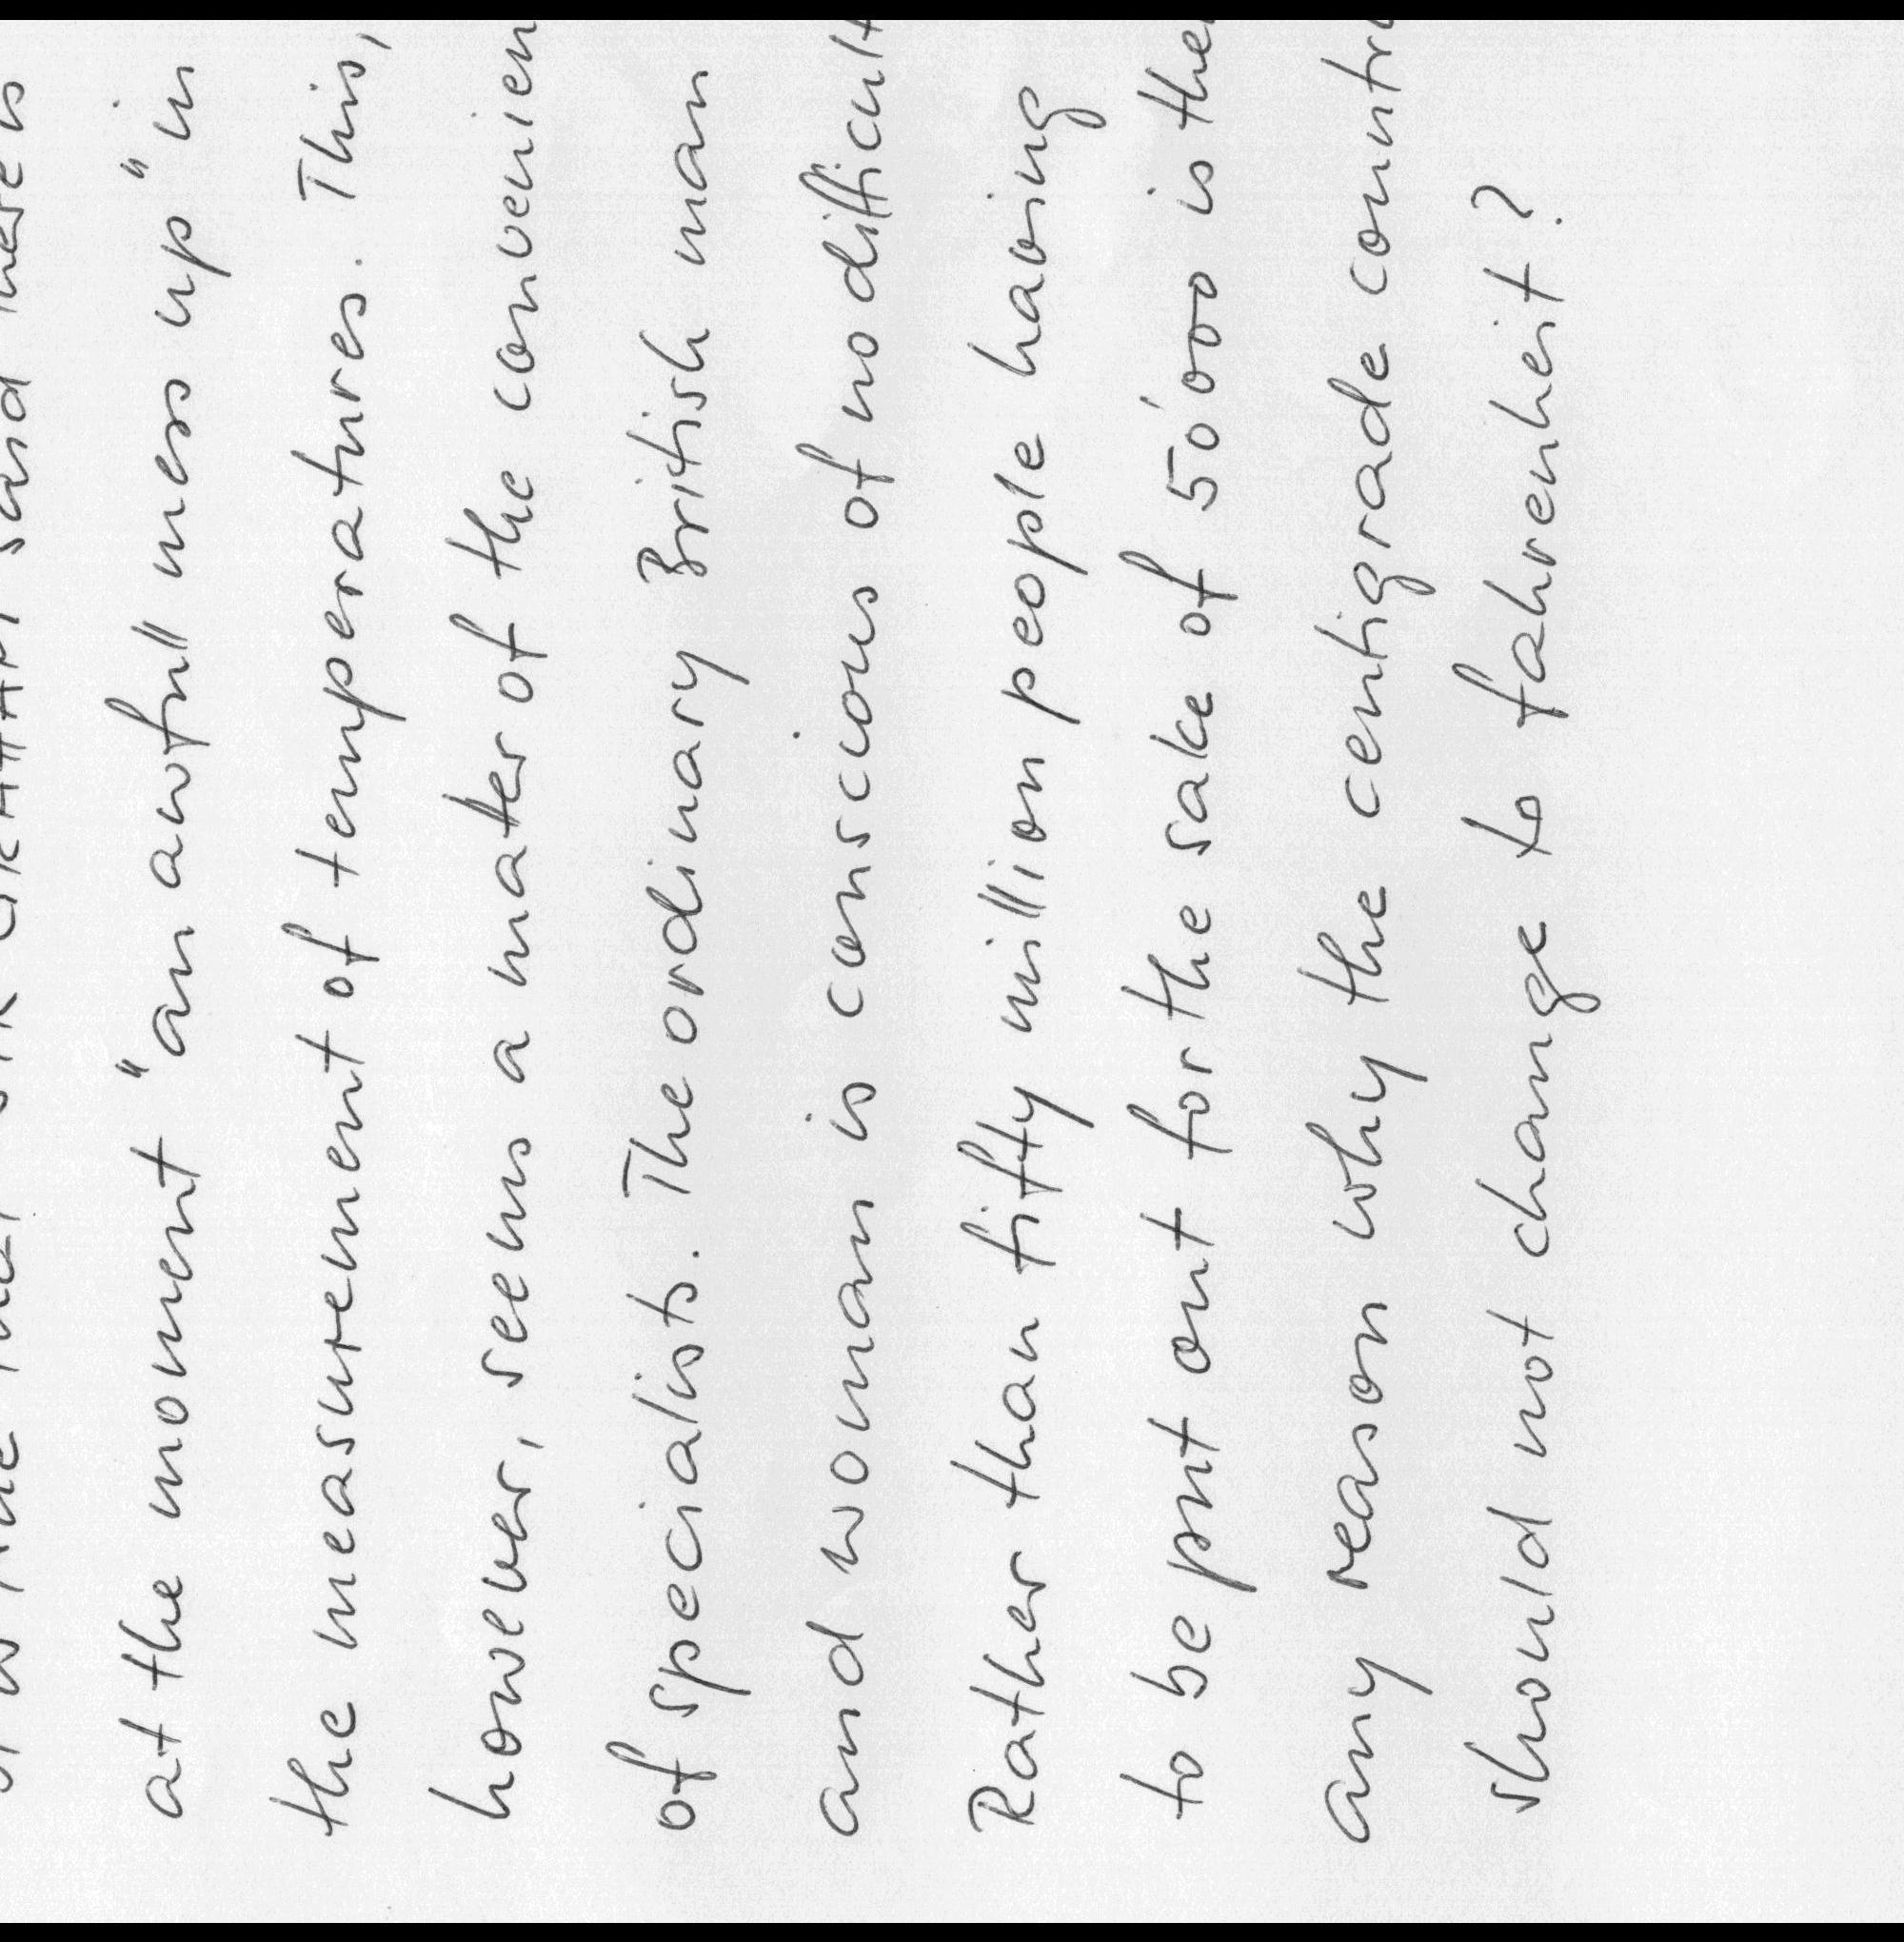 SIR GRAHAM said there is
at the moment "an awfull mess up" in
the measurement of temperatures. This,
however, seems a matter of the convenien
of specialists. The ordinary British man
and woman is conscious of no difficult
Rather than fifty million people having
to be put out for the sake of 50'000 is the
any reason why the centigrade contr
should not change to fahrenheit?